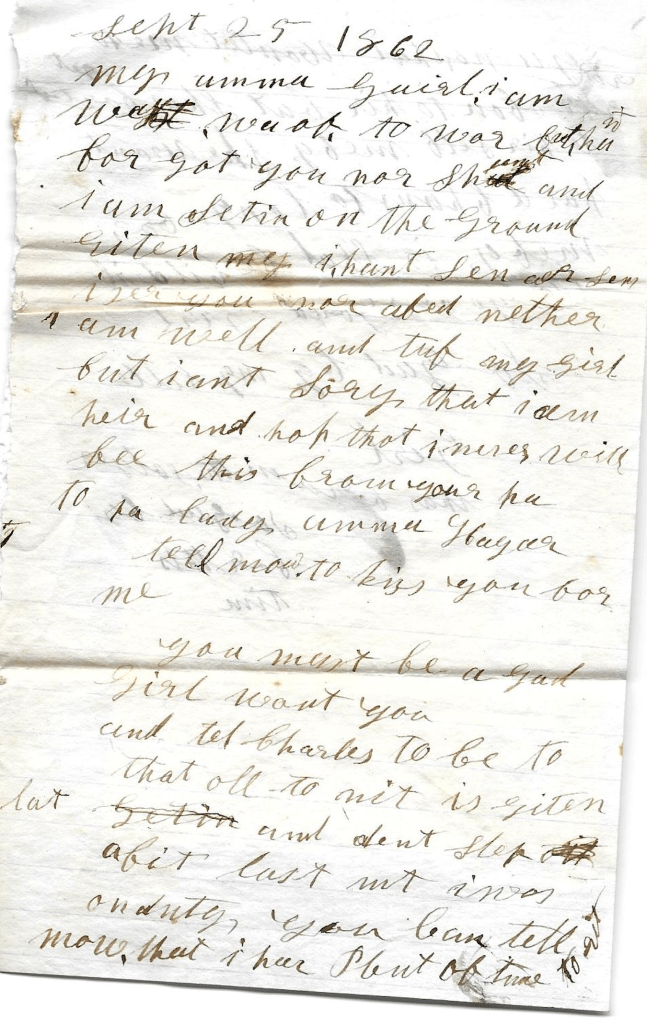 Sept 25 1862
my amma guirl. i am
to war but
for got you nor and
i am Setin on the ground
giten my i hant Sen
i ser you nor abed nether
am well and tuf my girl
but i ant Sory that i am
heir and hop that i never will
bee this from your pa
to pa lady amma Hagar
tell mow to kiss you for
me
you must be a gud
girl wont you
and tel Charles to be to
that oll to nit is giten
lat Setin and dent Slep
abit last nit i was
onduty you Can tell
mow that i har Plent of time to rit